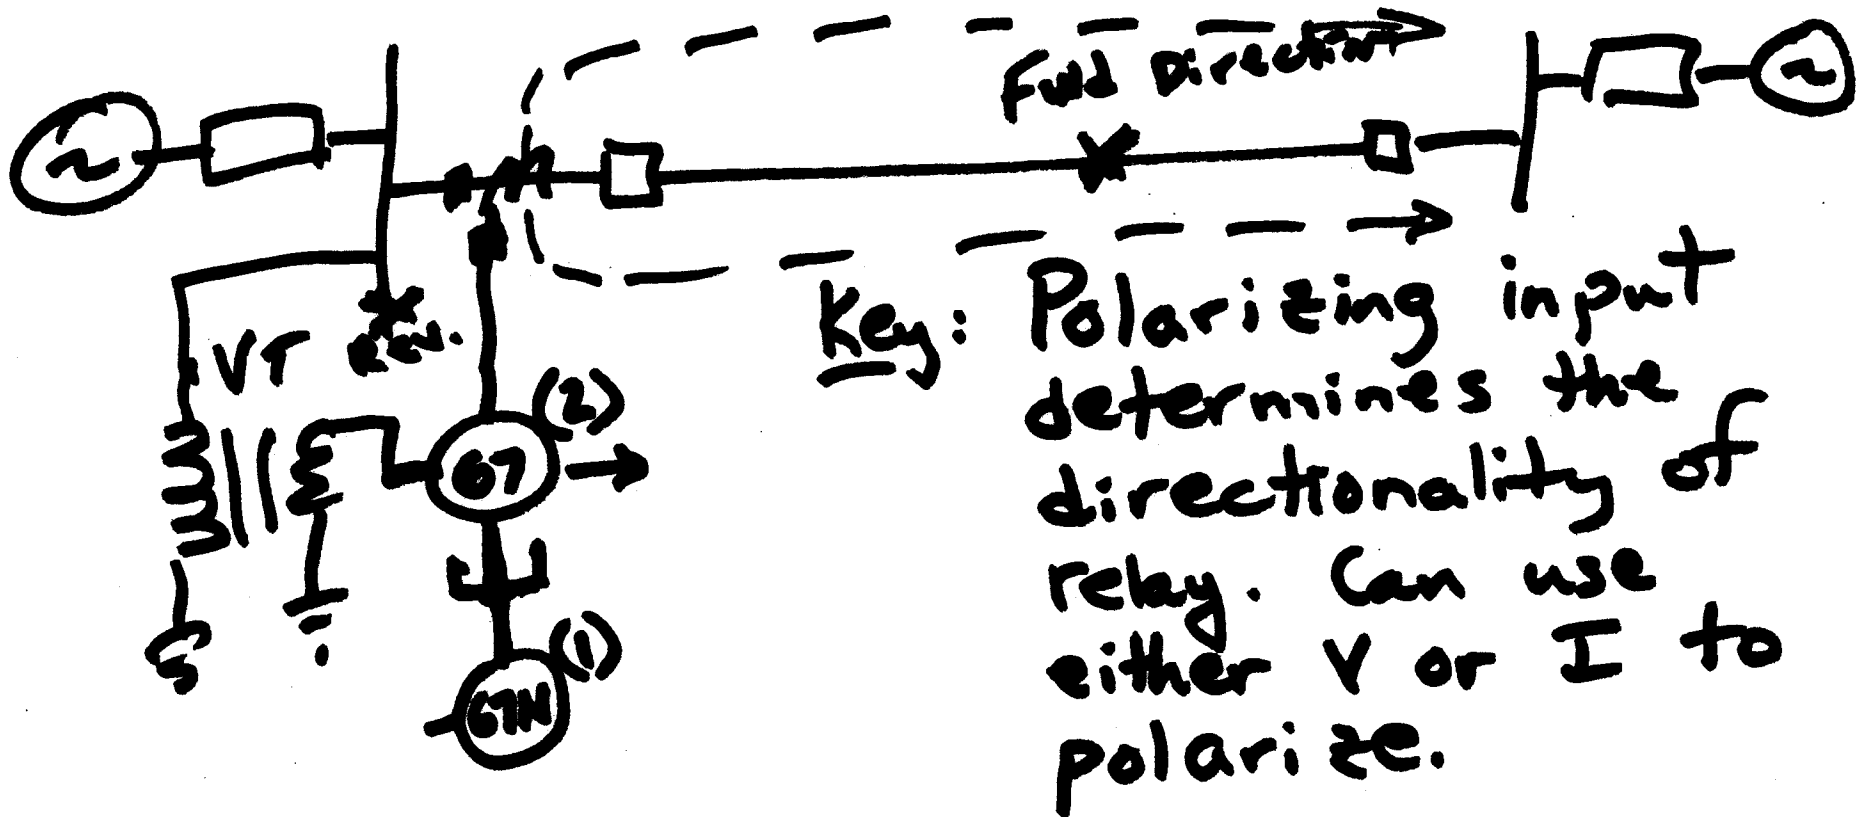 Fwd Direction
VT
Rev.
(2)
67
(1)
67N
Key: Polarizing input
determines the
directionality of
relay. Can use
either V or I to
polarize.